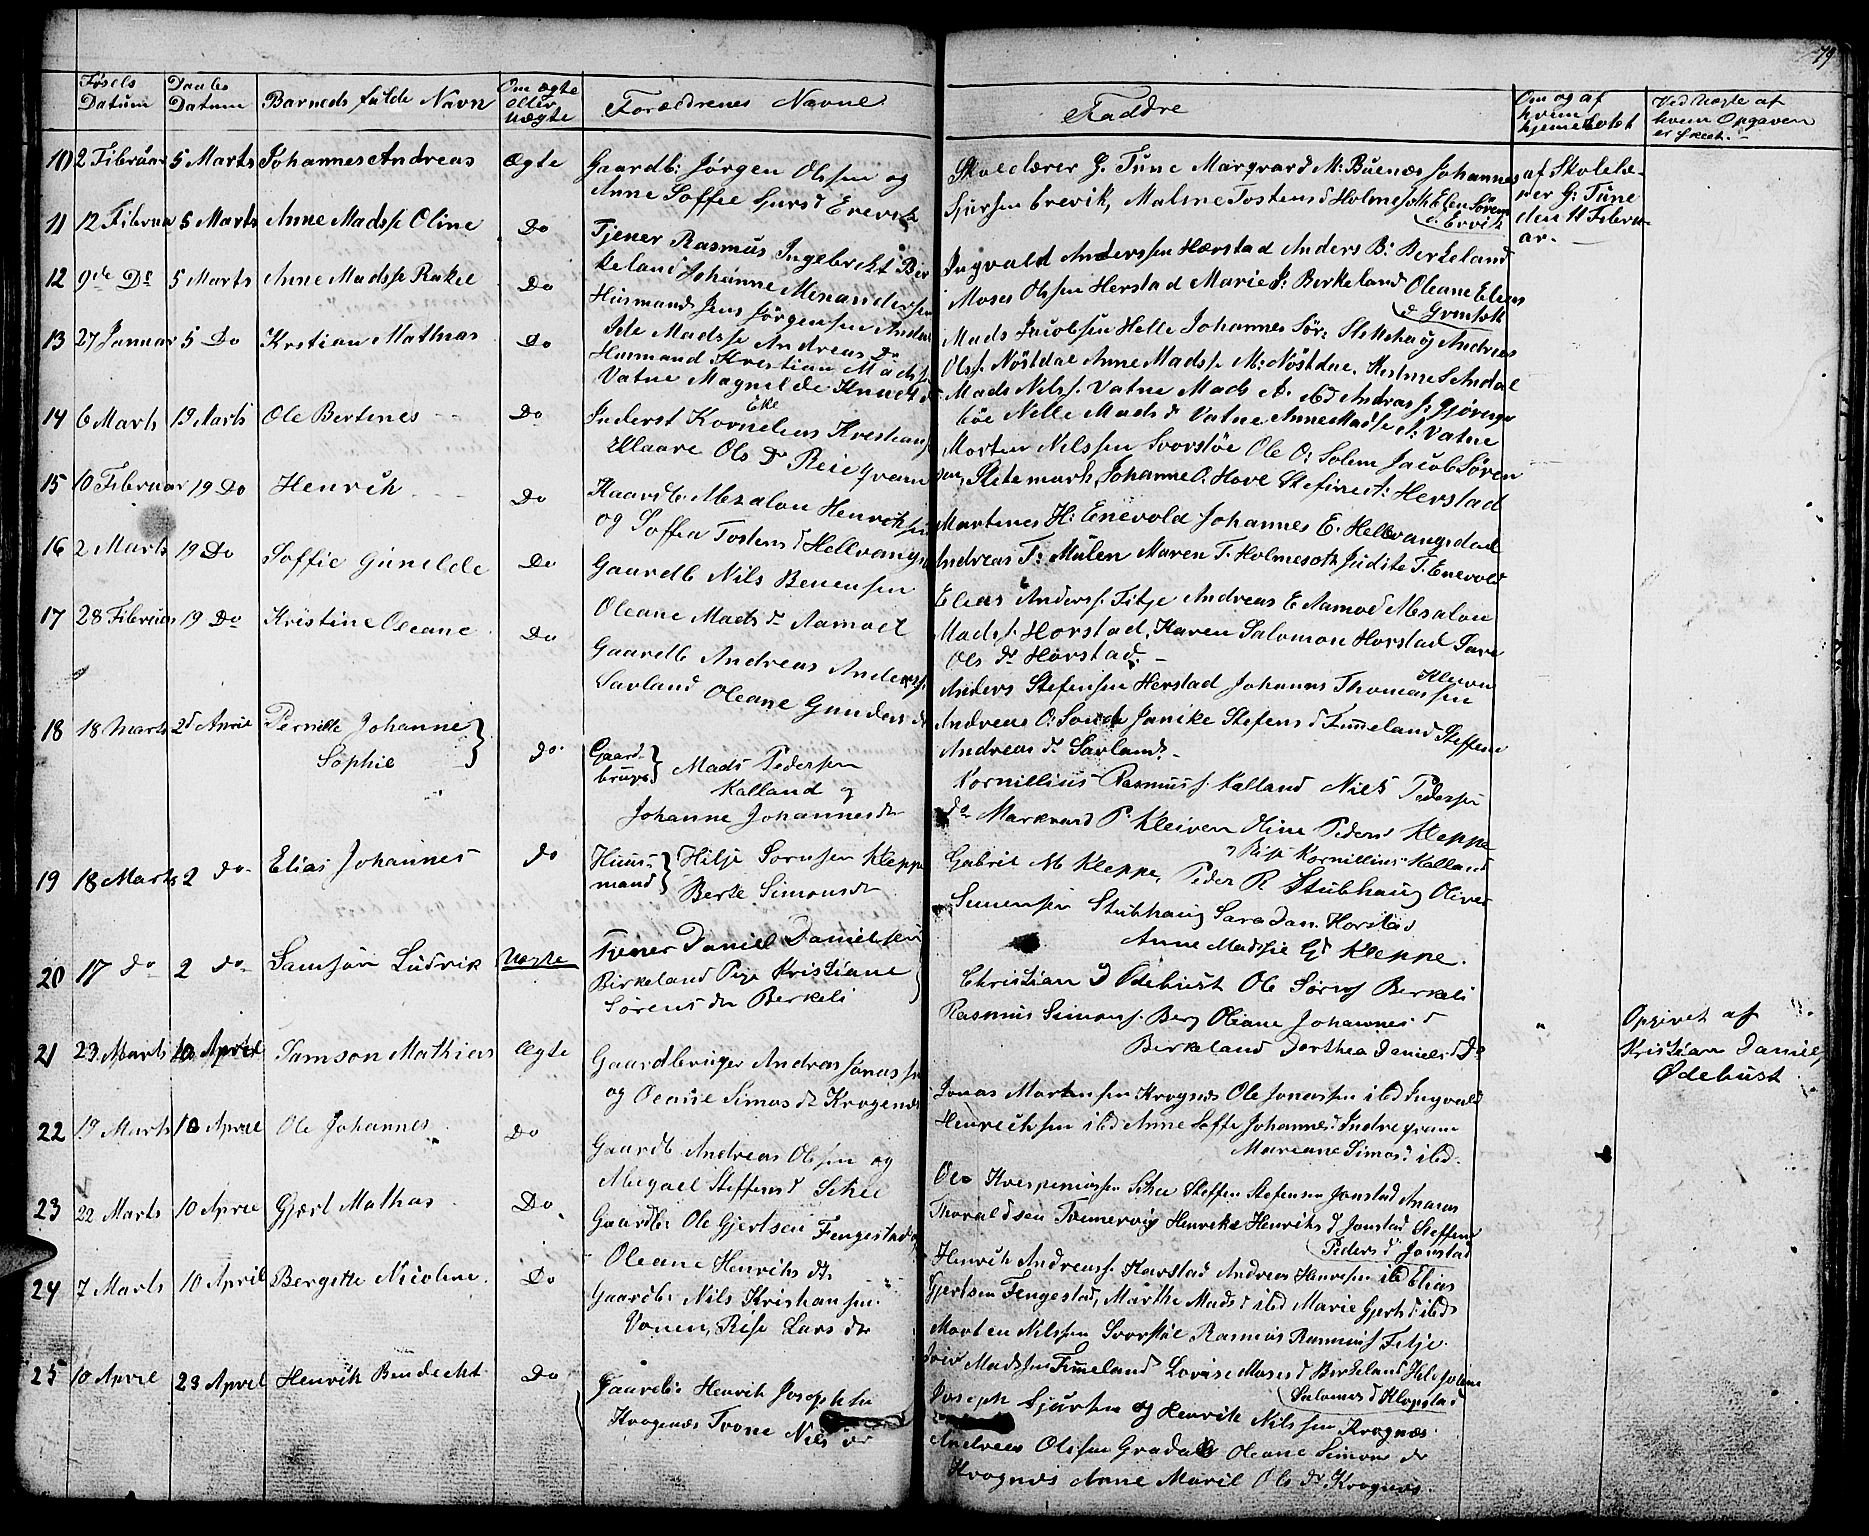 79
Føsels Datum
Daabs Datum
Barneds fulde Navn
Om ægte eller uægte
Forældrenes Navne
Faddre
Om og af hvem hjemedøbt
Ved Uægte af hvem Opgaven er skeet.
10) 2 Februar 5 Marts Johannes Andreas Ægte Gaardb: Jørgen Olssen og
Anne Soffie Sjurs d
Skolelærer G. Tune Margrard M: Buenæs Johannes
Sjursen Erevik, Malene Tostens d Holmesoth Elen Sørens
d. Ervik
af Skolelæ-
rer G: Tune
den 11 Febru-
ar-
11 12 Februar 5 Marts Anne Madsse Oline Do Tjener Rasmus Ingebrekt Ber
keland Johanne Minanderssen
Ingvald Anderssen Hærstad Anders B: Berkeland
Moses Olssen Herstad Marie J: Berkeland Oleane Elens
d Grimset
12 9de Do 5 Marts Anne Madsse Rakel Do Husmand Jens Jørgensen Andal
Ide Madsse Andreas Do
Mads Jacobsen Helle Johannes Sør: Slettehaug Andreas
Ols. Nöstdal Anne Madsse M: Nöstdal, Andal
13 27 Januar 5 Do Kristian Mathias Do Husmand Kristian Madss.
Vatne Magnilde Knuds d
Mads Nilss. Vatne Mads A. ibd Andreas J.
böe Nelle Mads d Vatne Anne Madsse A: Vatne
14 6 Marts 19 Marts Ole Bertenes Do Inderst Kornelius Eke Kristians
Maare Ols Dr Reiegram
Morten Nilssen Svorstöe Ole O: Solem Jacob Sören
sen, Slitemark, Johanne O: Hove Stefine A: Herstad
15 10 Februar 19 Do Henrik Do Gaardb Absalon Henriksen
og Soffia Tostens d Hellvang
Martenes H: Enevold Johannes E. Hellevang
Andreas T: Mulen Maren T. Holmesoth Judite T. Enevold
16 2 Marts 19 Do Soffie Gunelde Do Gaardb Nils Benensen
Oleane Mads Dr Aamot
Elias Anderss. Fitje Andreas E Aamod Absalon
Madss. Horstad, Karen Salomon Horstad
Ols Dr Horstad. -
17 28 Februar 19 Do Kristine Oleane Do Gaardb Andreas Anderss.
Savland Oleane Gunders dr
Anders Stefensen Herstad Johannes Thomassen Kleven
Andreas O: Sande Janike Stefens d Fimmeland Steffen
Andreas dr Savland. -
18 18 Marts 2d April Pernille Johanne
Sophie
do Gaard-
bruger Mads Pedersen
Kalland og
Johanne Johannesdr
Kornillius Rasmuss. Kalland Niels Pedersen
do Markvard P. Kleiven Oline Peders Kleppe
d Risse Kornillius Kalland
19 18 Marts 2 do Elias Johannes do Huus-
mand Hilje Sørnsen Kleppe
Berte Simonsdr
Gabril M Kleppe, Peder R Stubhaug Oliver
Simensen Stubhaug Sara Dan. Horstad
Anne Madsse Ed Kleppe.
20 17 do 2 do Samson Ludvik Uægte Tjener Daniel Danielsen
Birkeland Pige Kristiane
Sørensdr Berkeli
Christian D Ødehust Ole Sørns Berkeli
Rasmus Simons. Berg Oliane Johannes d
Berkeland Dorthea Daniels d Do
Opgivet af
Kristian Daniels
Ødehust
21 23 Marts 10 April Samson Mathias Ægte Gaardbruger Andreas Jonassen
og Oleane Simos dr Krogenæs
Jonas Mortensen Krognæs Ole Jonassen ibd Ingvald
Henrichsen ibd Anne Soffe Johannes Indregram
Mareane Simos d ibd.
22 19 Marts 10 April Ole Johannes Do Gaardb Andreas Olssen og
Abegael Steffens d
Ole Steffen Stefensen Jonstad
Thoraldsen Henrike Henriks d Jonstad Steffen
Peders d Jonstad
23 22 Marts 10 April Gjert Mathas Do Gaardb: Ole Gjertsen Fengestad og
Oleane Henriks dr
Henrik Andreass. Karstad Andreas Henrssen ibd Elias
Gjertsen Fengestad, Marthe Mads d ibd Marie Gjerts d ibd
24 7 Marts 10 April Bergitte Nicoline Do Gaardb: Nils Kristiansen
Vonen, Rise Lars dr
Morten Nilssen Svorstöl Rasmus Rasmuss Fitje
Madssen Fimmeland Lovise Moses d Birkeland
Salomos d Klopstad
25 10 April 23 April Henrik Bendecht Do Gaardb: Henrik Josephsen
Krogenæs Trone Nils dr
Joseph Sjursen og Henrik Nilssen Krognæs
Andreas Olssen Oleane Simon dr
Krognæs Anne Maril Ols dr Krognæs.